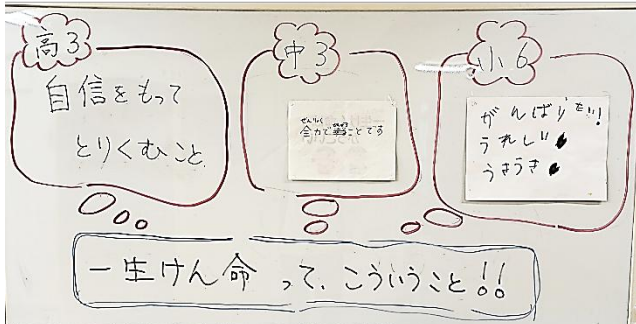 高3
自信をもって
とりくむこと
中3
全力で
ことです
小6
がんばりたい!
うれしい
うきうき
一生けん命 って、こういうこと!!